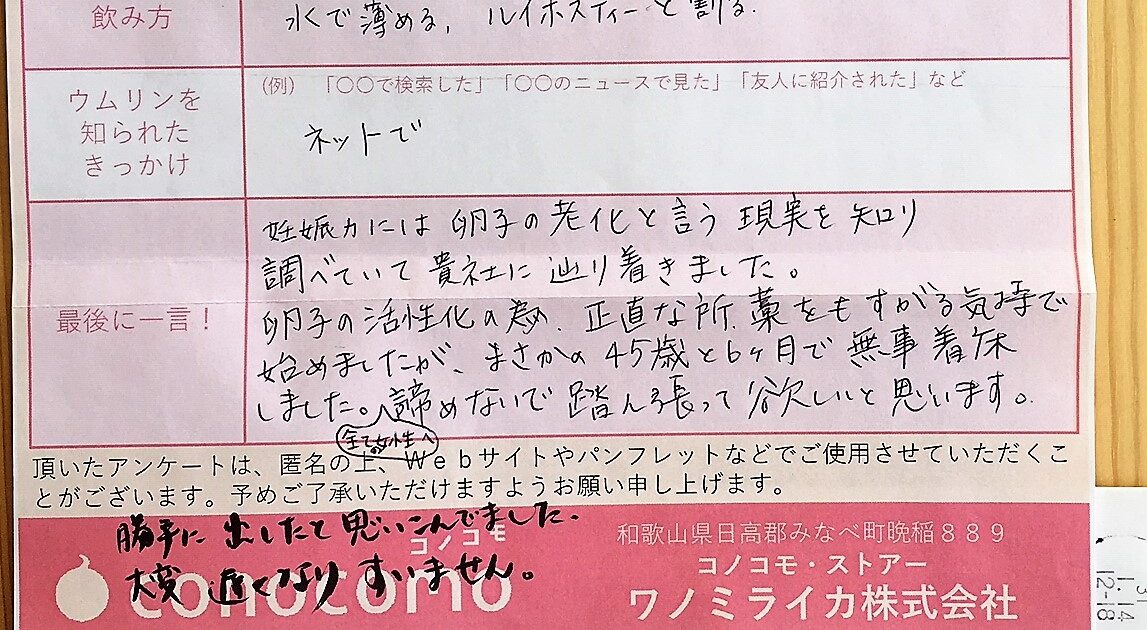 飲み方
水で薄める,ルイボスティーと割る.
ウムリンを
知られた
きっかけ
(例) 「〇〇で検索した」「〇〇のニュースで見た」「友人に紹介された」など
ネットで
最後に一言!
妊娠力には卵子の老化と言う現実を知り
調べていて貴社に辿り着きました。
卵子の活性化の為、正直な所、藁をもすがる気持で
始めましたが、まさかの45歳と6ヶ月で無事着床
しました。諦めないで踏ん張って欲しいと思います。
全ての女性へ
頂いたアンケートは、匿名の上、Webサイトやパンフレットなどでご使用させていただくこ
とがございます。予めご了承いただけますようお願い申し上げます。
勝手に出したと思いこんでました.
大変遅くなりすいません。
コノコモ
conocomo
和歌山県日高郡みなべ町晩稲889
コノコモ・ストアー
ワノミライカ株式会社
31
1.14
12-18